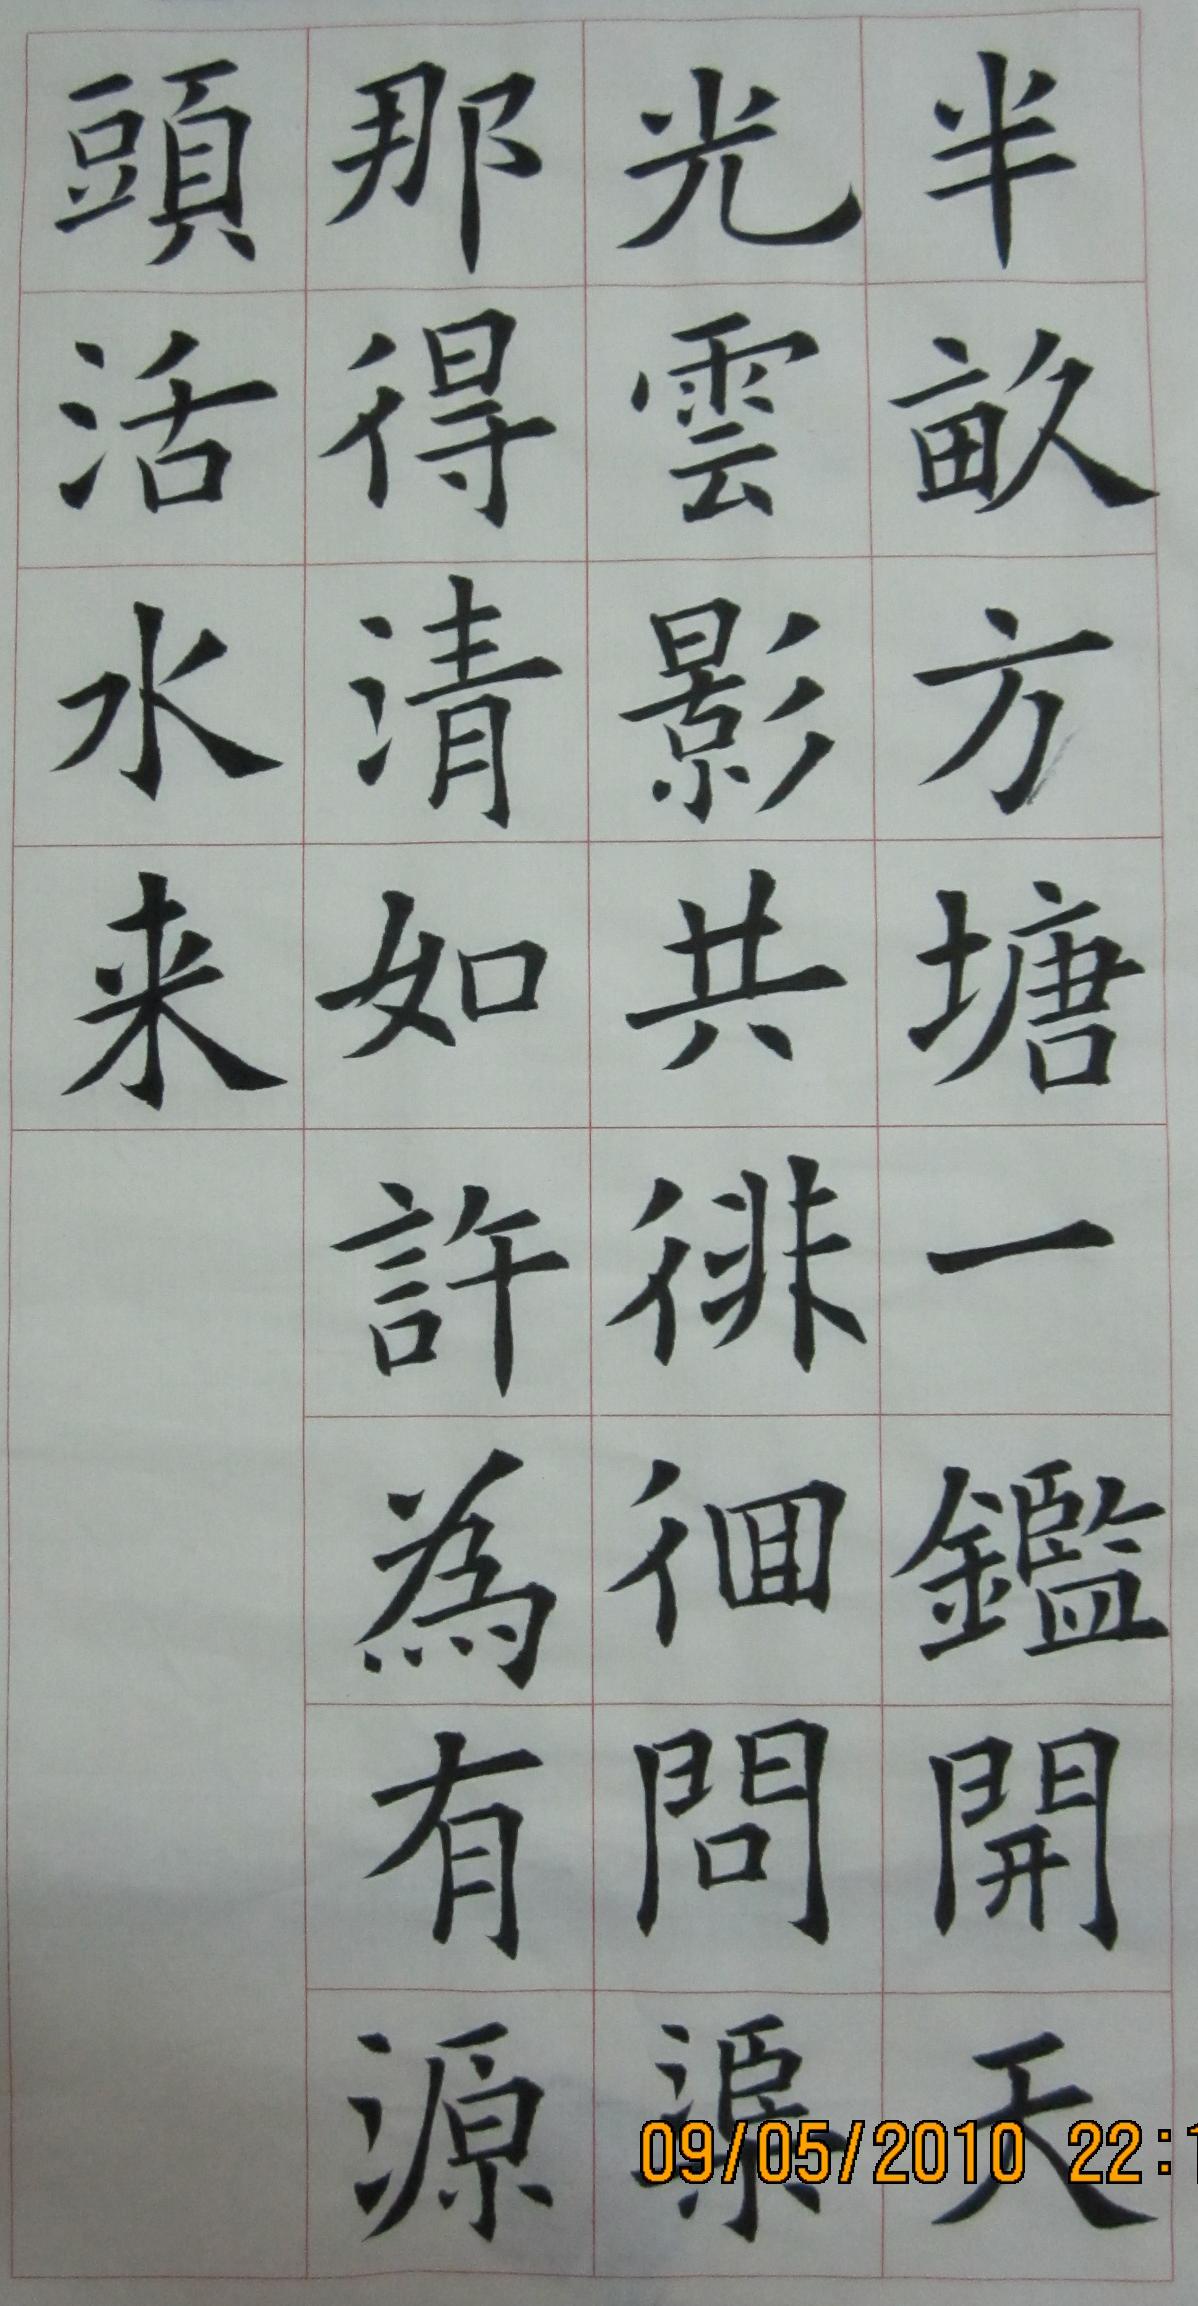 半畝方塘一鑑開天
光雲影共徘徊問渠
那得清如許為有源
頭活水来
09/05/2010 22:1